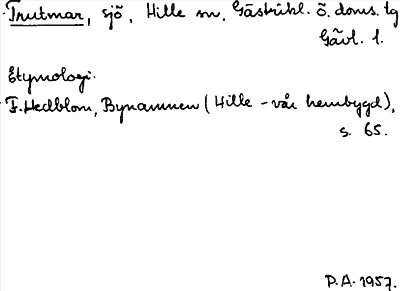 Trutmar, sjö, Hille sn, Gästrikl. ö. doms. tg
Gävl. l.
Etymologi.
F. Hedblom, Bynamnen (Hille - vår hembygd),
s. 65.
P.A. 1957.